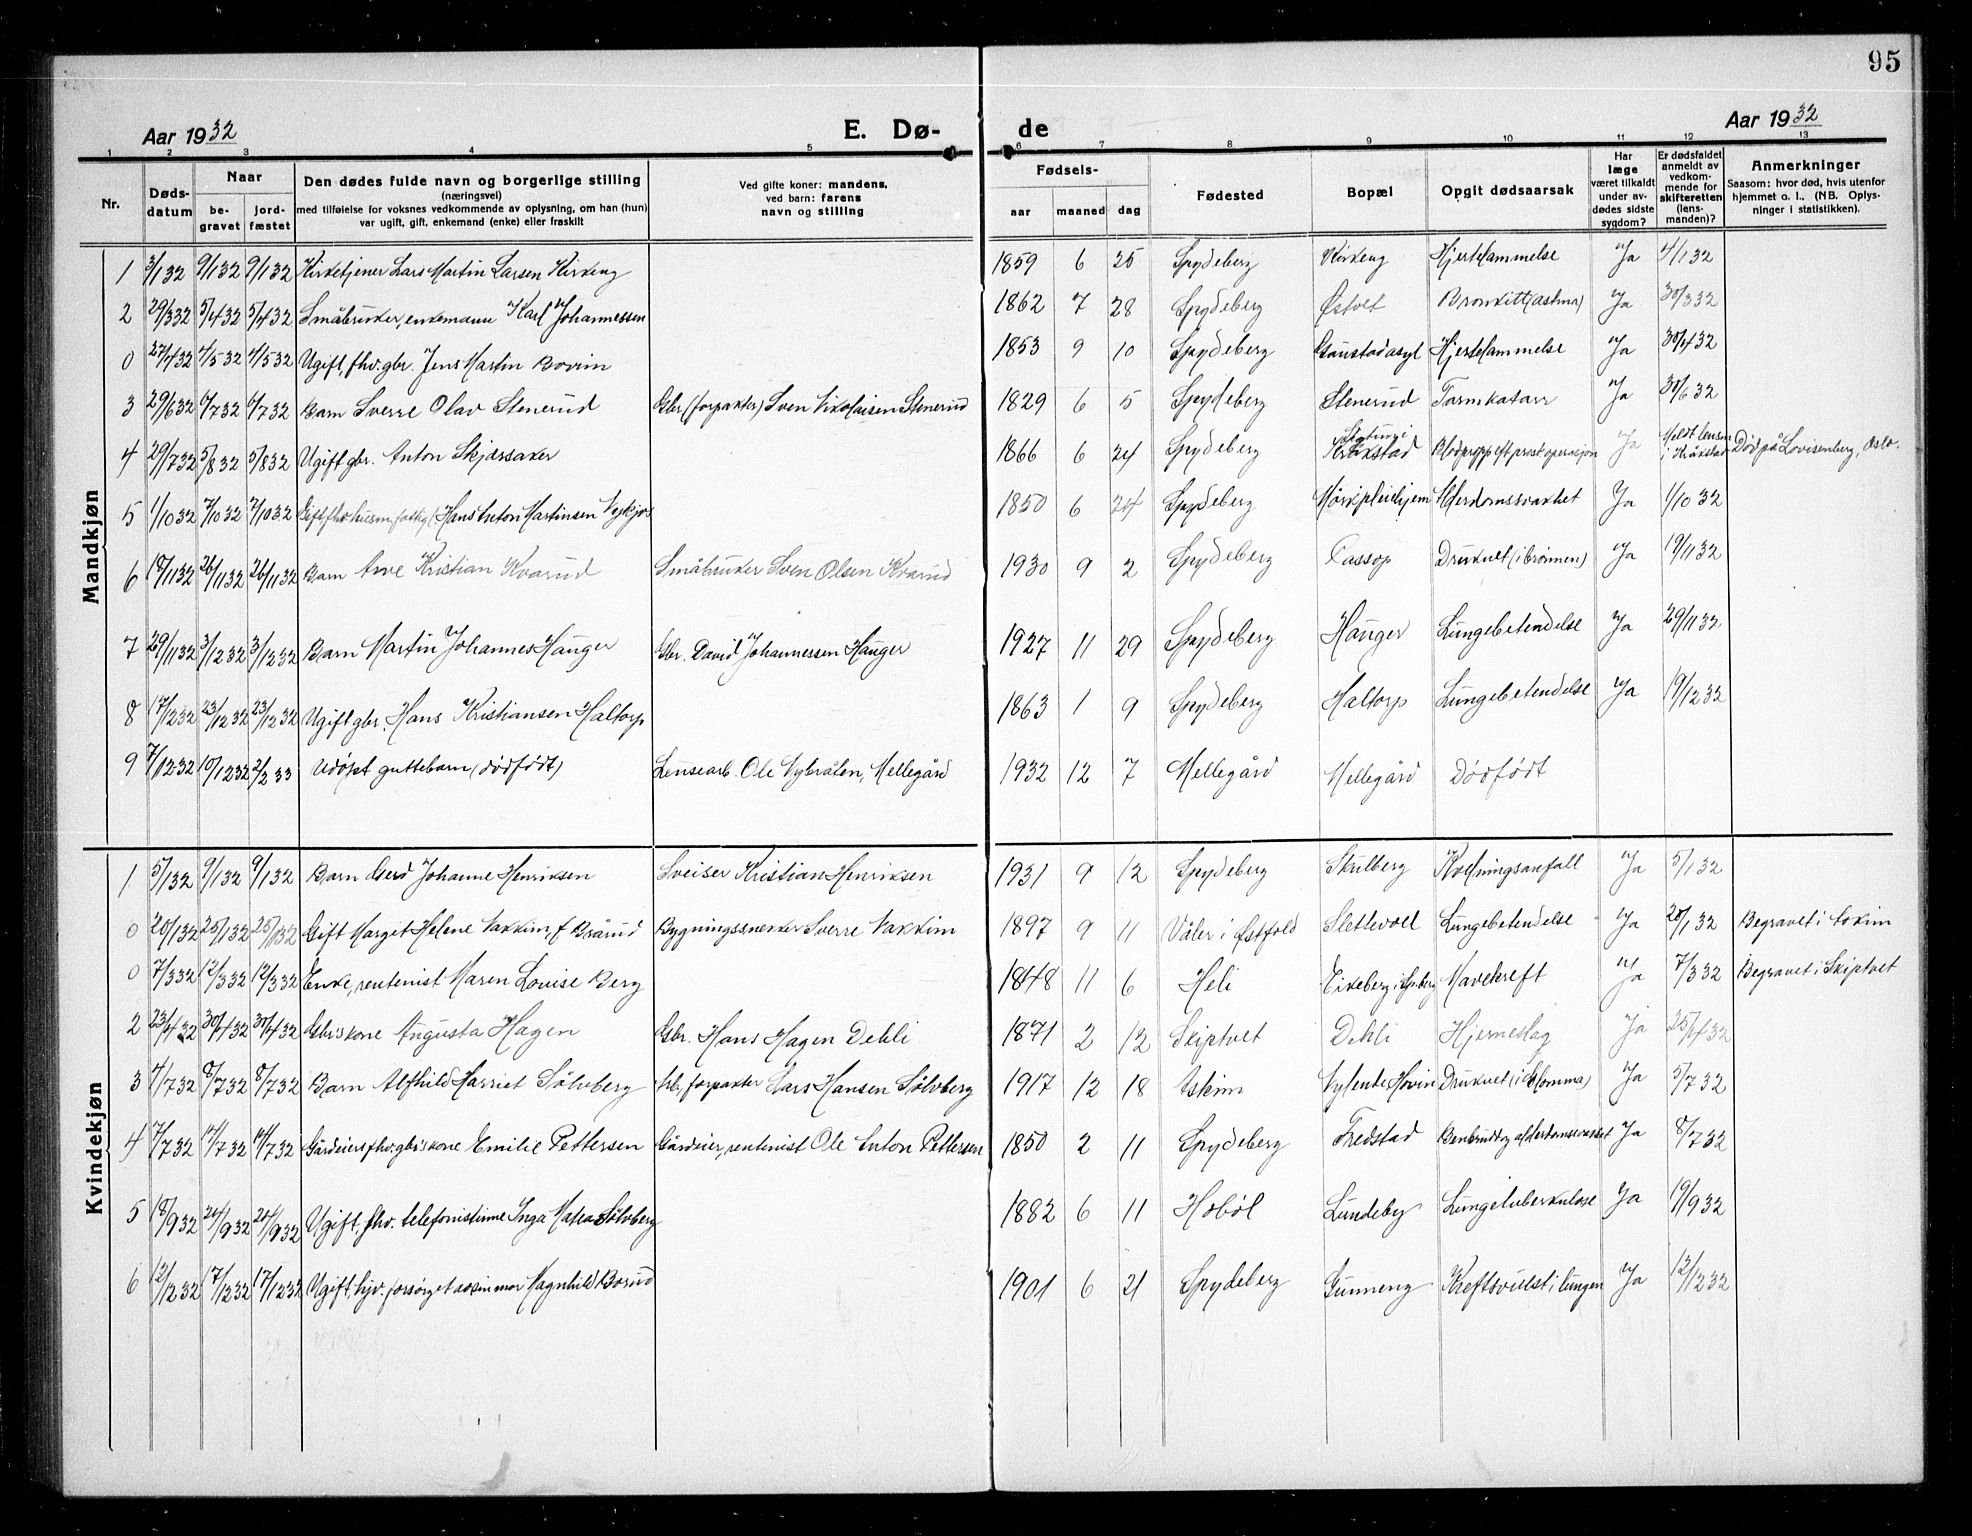 95
Aar 1932 E. Dø- de Aar 1932
1 2 3 4 5 6 7 8 9 10 11 12 13
Nr.
Døds-datum
Naar
be-gravet
jord-fæstet
Den dødes fulde navn og borgerlige stilling
(næringsvei)
med tilføielse for voksnes vedkommende av oplysning, om han (hun)
var ugift, gift, enkemand (enke) eller fraskilt
Ved gifte koner: mandens,
ved barn: farens
navn og stilling
Fødsels-
aar maaned dag
Fødested
Bopæl
Opgit dødsaarsak
Har læge været tilkaldt under av-dødes sidste sygdom?
Er dødsfaldet anmeldt av vedkom-mende for skifteretten (lens-manden)?
Anmerkninger
Saasom: hvor død, hvis utenfor hjemmet o. l., (NB. Oplys-ninger i statistikken).
Mandkjøn
1 3/1 32 9/1 32 9/1 32 Kirketjener Lars Martin Larsen Kirkeng 1859 6 25 Spydeberg Kirkeng Hjertelammelse Ja 4/1 32
2 29/3 32 5/4 32 5/4 32 Småbruker, enkemann Karl Johannessen 1862 7 28 Spydeberg Østvet Bronkitt (astma) Ja 30/3 32
0 27/4 32 4/5 32 4/5 32 Ugift, fhv. gbr. Jens Martin Bovim 1853 9 10 Spydeberg Gaustad asyl Hjertelammelse Ja 30/4 32
3 29/6 32 6/7 32 6/7 32 Barn Sverre Olav Stenerud Gbr (forpakter) Sven Nikolaisen Stenerud 1829 6 5 Spydeberg Stenerud Tarmkatarr Ja 30/6 32
4 29/7 32 5/8 32 5/8 32 Ugift gbr. Anton Skjærsaker 1866 6 24 Spydeberg Kråkstad Blodpropp eft. prost.operasjon Ja Meldt lensm i Kråkstad Død på Lovisenberg, Oslo.
5 1/10 32 7/10 32 7/10 32 Gift, fhv. husm. fattig (Hans Anton Martinsen 1850 6 24 Spydeberg Mørk pleiehjem Alderdomssvakhet Ja 1/10 32
6 18/11 32 26/11 32 26/11 32 Barn Arve Kristian Kvarud Småbruker Sven Olsen Kvarud 1930 9 2 Spydeberg Tassop Druknet (i brønnen) Ja 19/11 32
7 29/11 32 3/12 32 3/12 32 Barn Martin Johannes Hauger Gbr. David Johannessen Hauger 1927 11 29 Spydeberg Hauger Lungebetendelse Ja 29/11 32
8 17/12 32 23/12 32 23/12 32 Ugift gbr. Hans Kristiansen Haltorp 1863 1 9 Spydeberg Haltorp Lungebetendelse Ja 19/12 32
9 7/12 32 10/12 32 2/2 33 Udøpt guttebarn (dødfødt) Lensearb. Ole Nybråten, Mellegård 1932 12 7 Mellegård Mellegård Dødfødt
Kvindekjøn
1 5/1 32 9/1 32 9/1 32 Barn Gerd Johanne Henriksen Sveiser Kristian Henriksen 1931 9 12 Spydeberg Skulberg Kvelningsanfall Ja 5/1 32
0 20/1 32 25/1 32 25/1 32 Gift Marget Helene Vakkim f Brårud Bygningssnekker Sverre Vakkim 1897 9 11 Våler i Østfold Slettevoll Lungebetendelse Ja 20/1 32 Begravet i Askim
0 7/3 32 12/3 32 12/3 32 Enke, rentenist Maren Lovise Berg 1848 11 6 Heli Eikeberg i Spberg Mavekreft Ja 7/3 32 Begravet i Skiptvet
2 23/4 32 30/4 32 30/4 32 Gbr's kone Augusta Hagen Gbr. Hans Hagen Dehli 1871 2 12 Skiptvet Dehli Hjerneslag Ja 25/4 32
3 4/7 32 8/7 32 8/7 32 Barn Alfhild Harriet Sølvberg Gbr. forpakter Lars Hansen Sølvberg 1917 12 18 Askim Nylende Hovin Druknet (i Glomma) Ja 5/7 32
4 7/7 32 14/7 32 14/7 32 Gårdeiers fhv. gbr's kone Emilie Pettersen Gårdeier, rentenist Ole Anton Pettersen 1850 2 11 Spydeberg Fredstad Benbrudd og alderdomssvakhet Ja 8/7 32
5 18/9 32 24/9 32 24/9 32 Ugift, fhv. telefonistinne Inga Sølvberg 1882 6 11 Hobøl Lundeby Lungetuberkulose Ja 19/9 32
6 12/12 32 17/12 32 17/12 32 Ugift, hjv. forsørget av sin mor Magnhild Borud 1901 6 21 Spydeberg Gunneng Kreftsvulst i lungen Ja 12/12 32